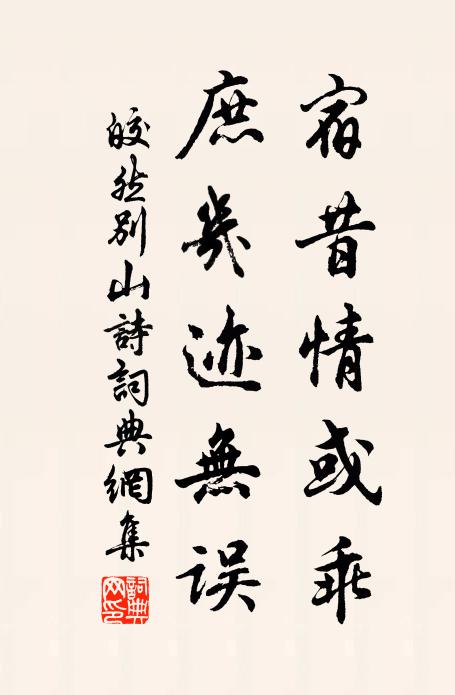 宿昔情或乖
庶幾迹無误
皎然別山詩詞典網集
詞典網印